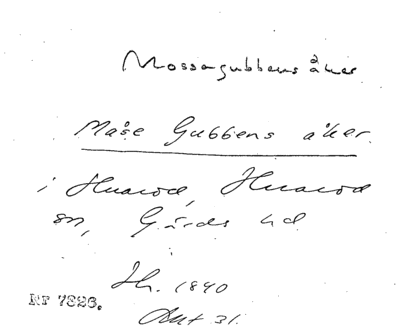 Mossagubbens åker
Måse Gubbens åker.
i Huaröd, Huaröd
sn, Gärds hd
Sh. 1840
Akt 31.
RF 7326.